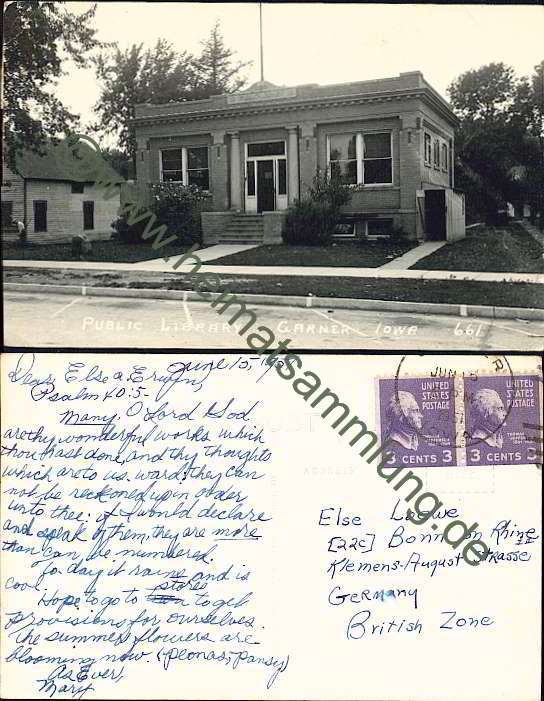 PUBLIC LIBRARY GARNER, IOWA 661
www.heimatsammlung.de
June 15, 19
Dear Else a Erwin,
Psalm 40:5-
Many, O Lord God,
are thy wonderful works which
thou hast done, and thy thoughts
which are to us ward; they can
not be reckoned up in order
unto thee: if I would declare
and speak of them, they are more
than can be numbered.
To day it rains and is
cool.
Hope to go to stores to get
provisions for ourselves.
The summer flowers are
blooming now. (peonas; pansy)
As Ever,
Mary
JUN 15
UNITED STATES POSTAGE
3 CENTS 3
UNITED STATES POSTAGE
3 CENTS 3
Else Loewe
[22c] Bonn on Rhine
Klemens-August Strasse
Germany
British Zone